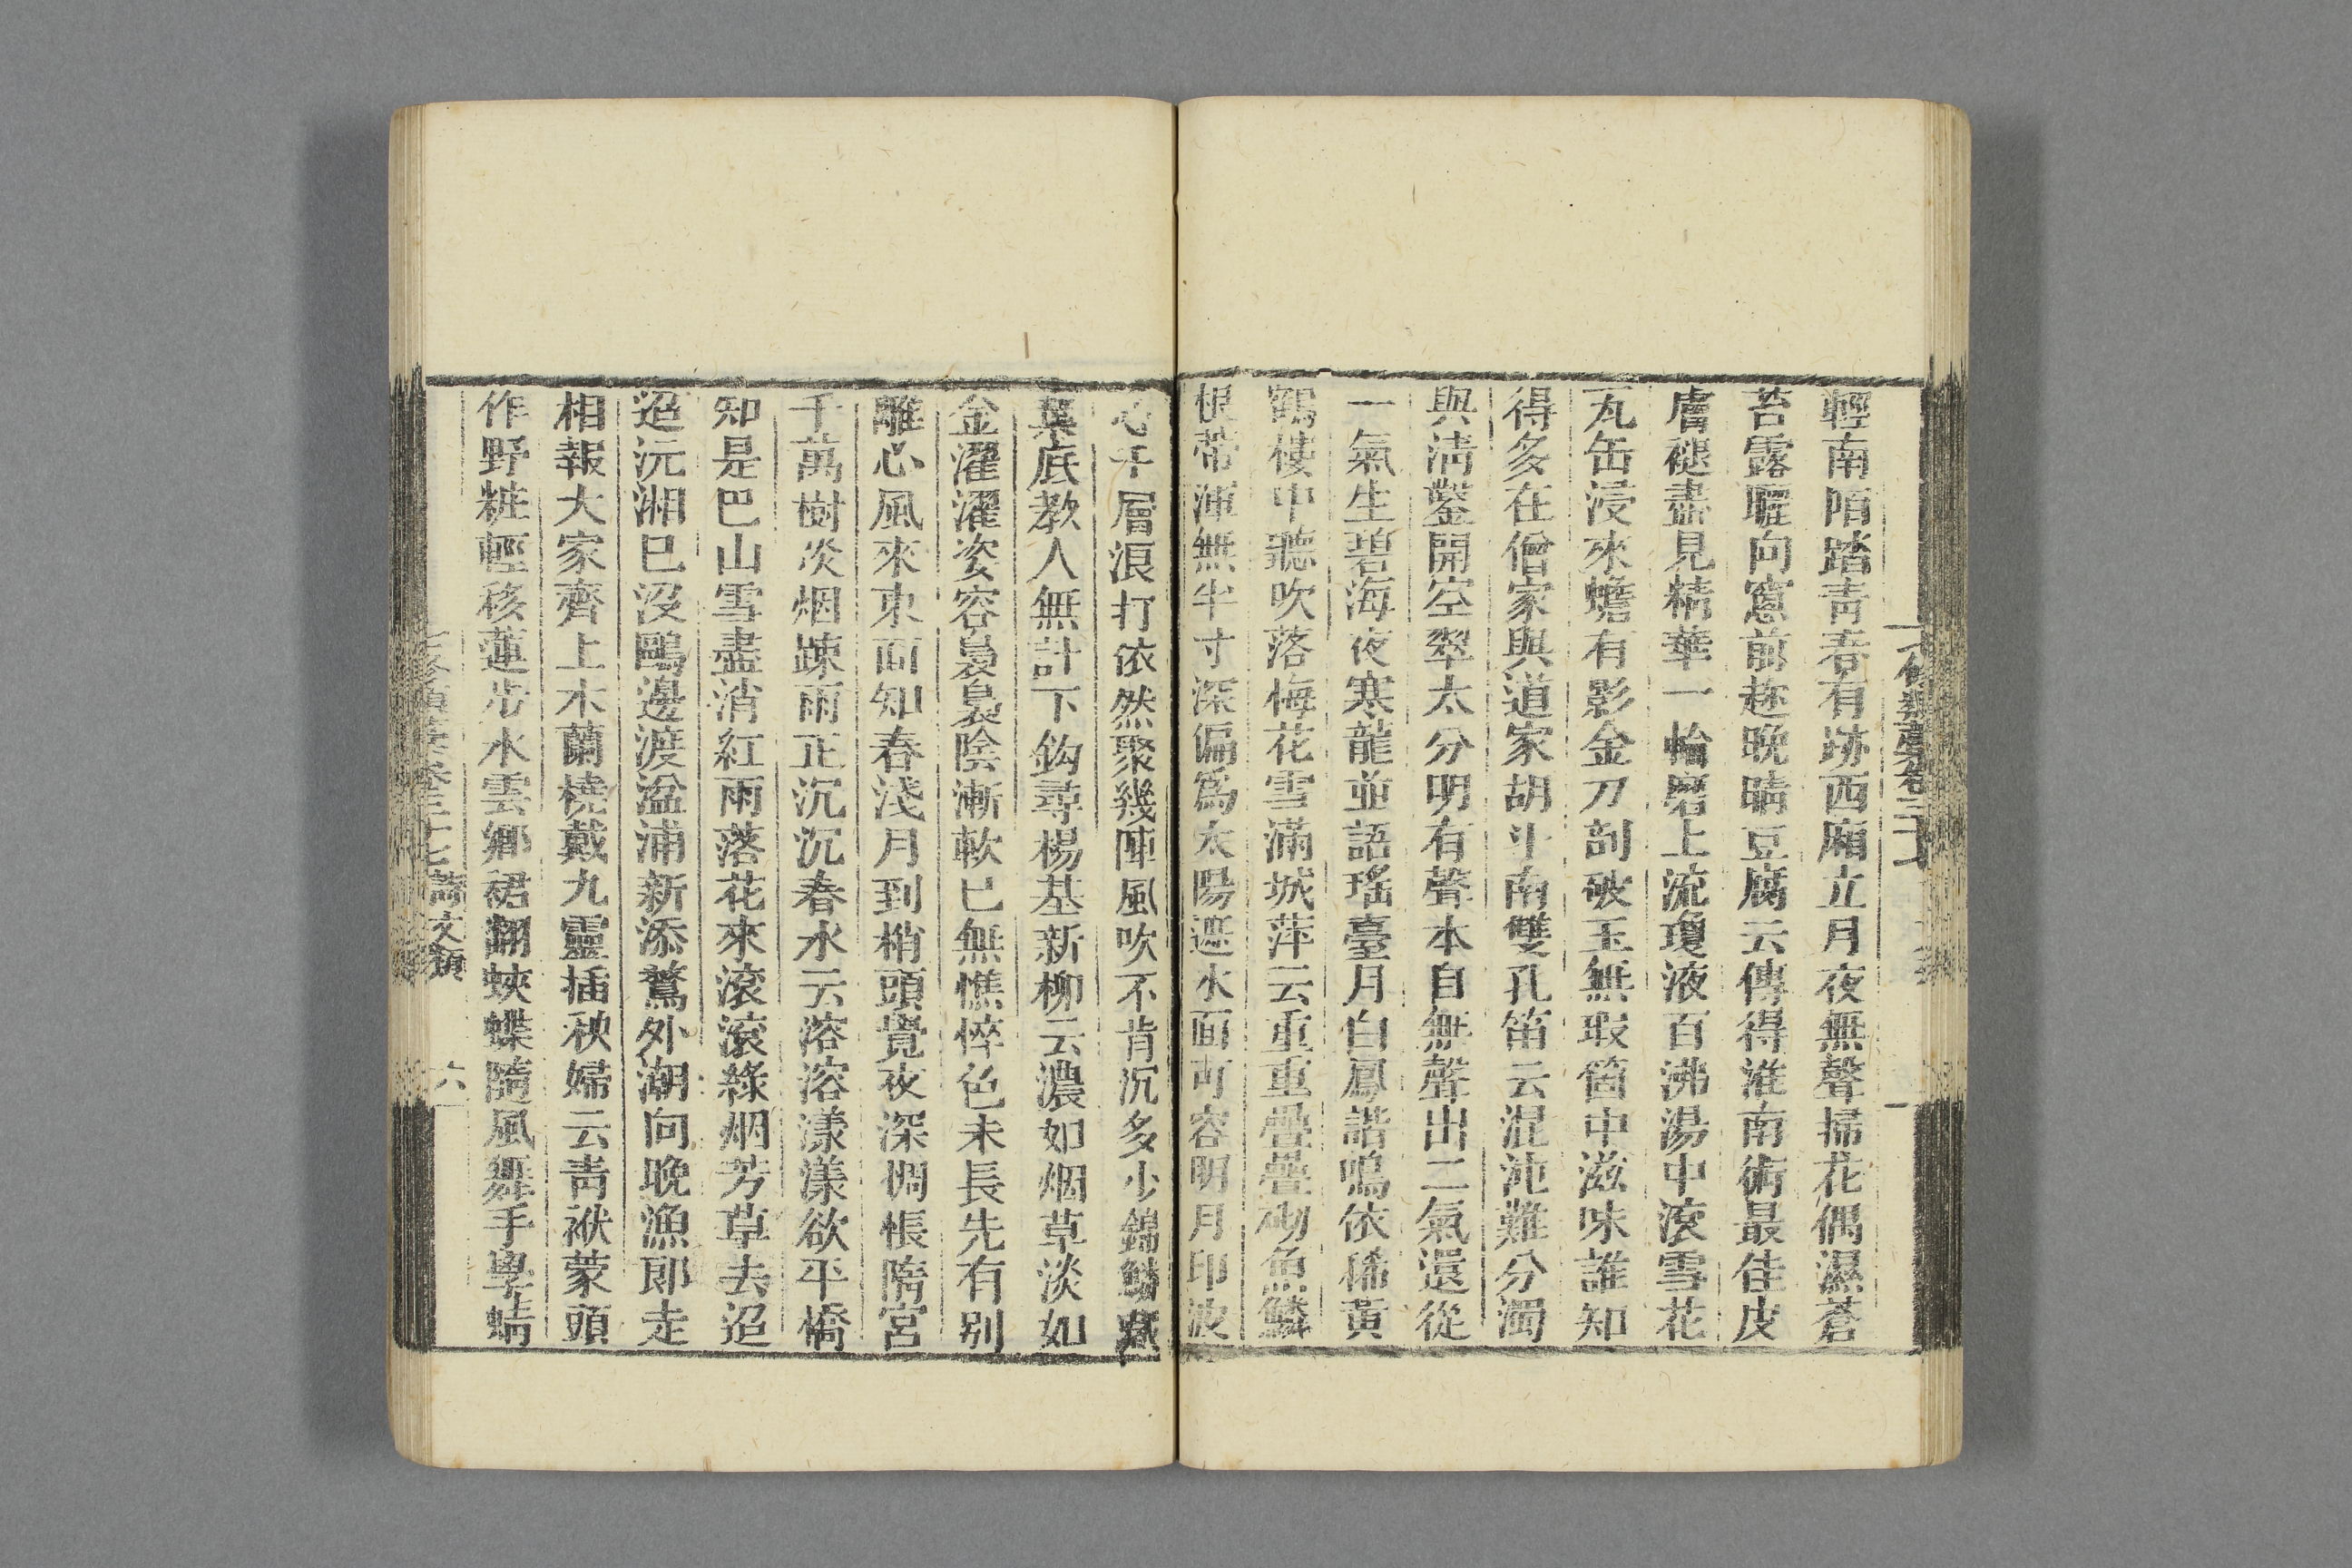 輕南陌踏青春有跡西廂立月夜無聲掃花偶濕蒼
苔露曬向窻前趂晚晴豆腐云傳得淮南術最佳皮
膚褪盡見精華一輪磨上流瓊液百沸湯中滾雪花
瓦缶浸來蟾有影金刀剖破玉無瑕箇中滋味誰知
得多在僧家與道家胡斗南雙孔笛云混沌難分濁
與清鑿開空翠太分明有聲本自無聲出二氣還從
一氣生碧海夜寒龍並語瑤臺月白鳳諧鳴依稀黃
鶴樓中聽吹落梅花雪滿城萍云重重疊疊砌魚鱗
根蒂渾無半寸深偏爲太陽遮水面可容明月印波
心千層浪打依然聚幾陣風吹不肯沉多少錦鱗藏
葉底教人無計下鈎尋楊基新柳云濃如烟草淡如
金濯濯姿容裊裊陰漸軟已無憔悴色未長先有别
離心風來東面知春淺月到梢頭覺夜深惆悵隋宮
千萬樹淡烟踈雨正沉沉春水云溶溶漾漾欲平橋
知是巴山雪盡消紅雨落花來滾滾綠烟芳草去迢
迢沅湘巳沒鷗邊渡湓浦新添鷺外潮向晚漁郎走
相報大家齊上木蘭橈戴九靈插秧婦云青袱蒙頭
作野粧輕移蓮步水雲鄉裙翻蛺蝶隨風舞手學蜻
七修類藁卷三十七 詩文類 六